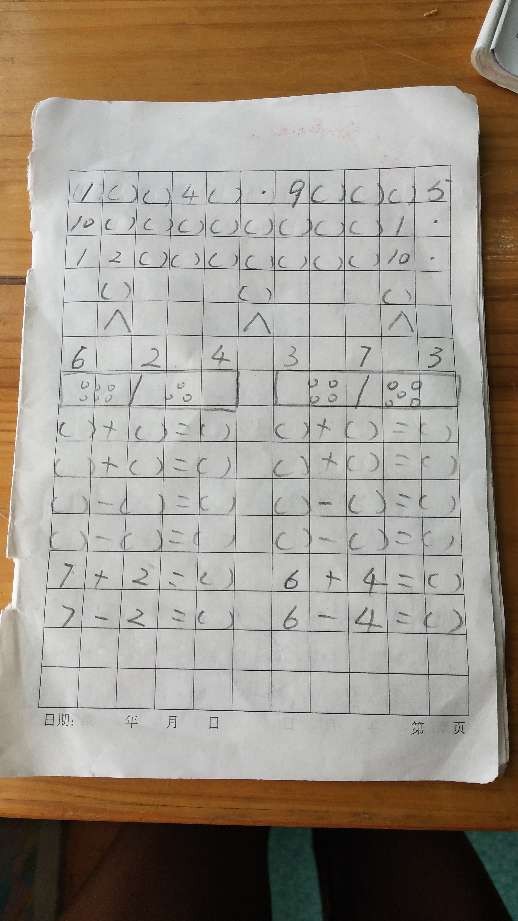 1 ( ) ( ) 4 ( ) · 9 ( ) ( ) ( ) 5
10 ( ) ( ) ( ) ( ) ( ) ( ) ( ) ( ) 1 ·
1 2 ( ) ( ) ( ) ( ) ( ) ( ) ( ) 10 ·
( ) ( ) ( )
∧ ∧ ∧
6 2 4 3 7 3
( ) + ( ) = ( ) ( ) + ( ) = ( )
( ) + ( ) = ( ) ( ) + ( ) = ( )
( ) - ( ) = ( ) ( ) - ( ) = ( )
( ) - ( ) = ( ) ( ) - ( ) = ( )
7 + 2 = ( ) 6 + 4 = ( )
7 - 2 = ( ) 6 - 4 = ( )
日期: 年 月 日 第 页